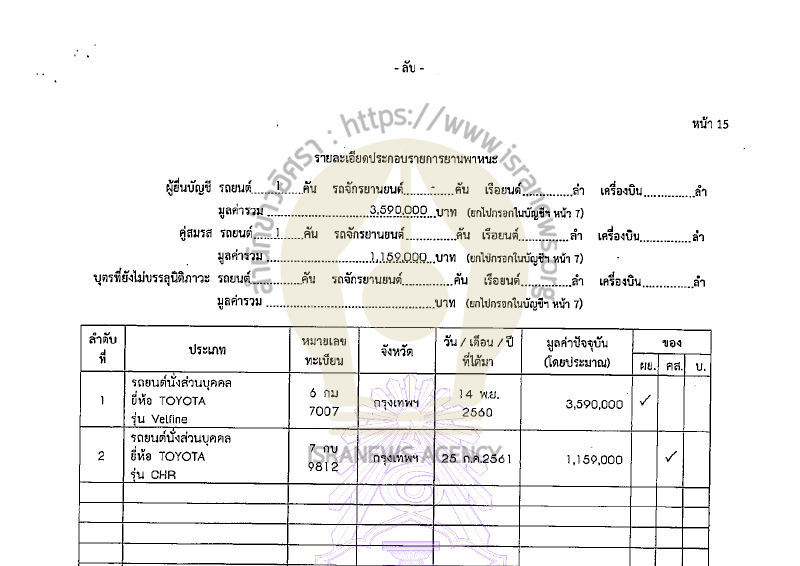 - ลับ -
หน้า 15
สำนักข่าวอิศรา : https://www.isranews.org
รายละเอียดประกอบรายการยานพาหนะ
ผู้ยื่นบัญชี รถยนต์.....1.....คัน รถจักรยานยนต์.....-.....คัน เรือยนต์..............ลำ เครื่องบิน..............ลำ
มูลค่ารวม ..............3,590,000..บาท (ยกไปกรอกในบัญชีฯ หน้า 7)
คู่สมรส รถยนต์.....1.....คัน รถจักรยานยนต์..............คัน เรือยนต์..............ลำ เครื่องบิน..............ลำ
มูลค่ารวม ..............1,159,000..บาท (ยกไปกรอกในบัญชีฯ หน้า 7)
บุตรที่ยังไม่บรรลุนิติภาวะ รถยนต์..............คัน รถจักรยานยนต์..............คัน เรือยนต์..............ลำ เครื่องบิน..............ลำ
มูลค่ารวม ..............บาท (ยกไปกรอกในบัญชีฯ หน้า 7)
ลำดับที่ ประเภท หมายเลขทะเบียน จังหวัด วัน / เดือน / ปี ที่ได้มา มูลค่าปัจจุบัน (โดยประมาณ) ของ
ผย. คส. บ.
รถยนต์นั่งส่วนบุคคล
1 ยี่ห้อ TOYOTA 6 กม 7007 กรุงเทพฯ 14 พ.ย. 2560 3,590,000 ✓
รุ่น Velfine
รถยนต์นั่งส่วนบุคคล
2 ยี่ห้อ TOYOTA 7 กบ 9812 กรุงเทพฯ 25 ก.ค.2561 1,159,000 ✓
รุ่น CHR
ISRANEWS AGENCY